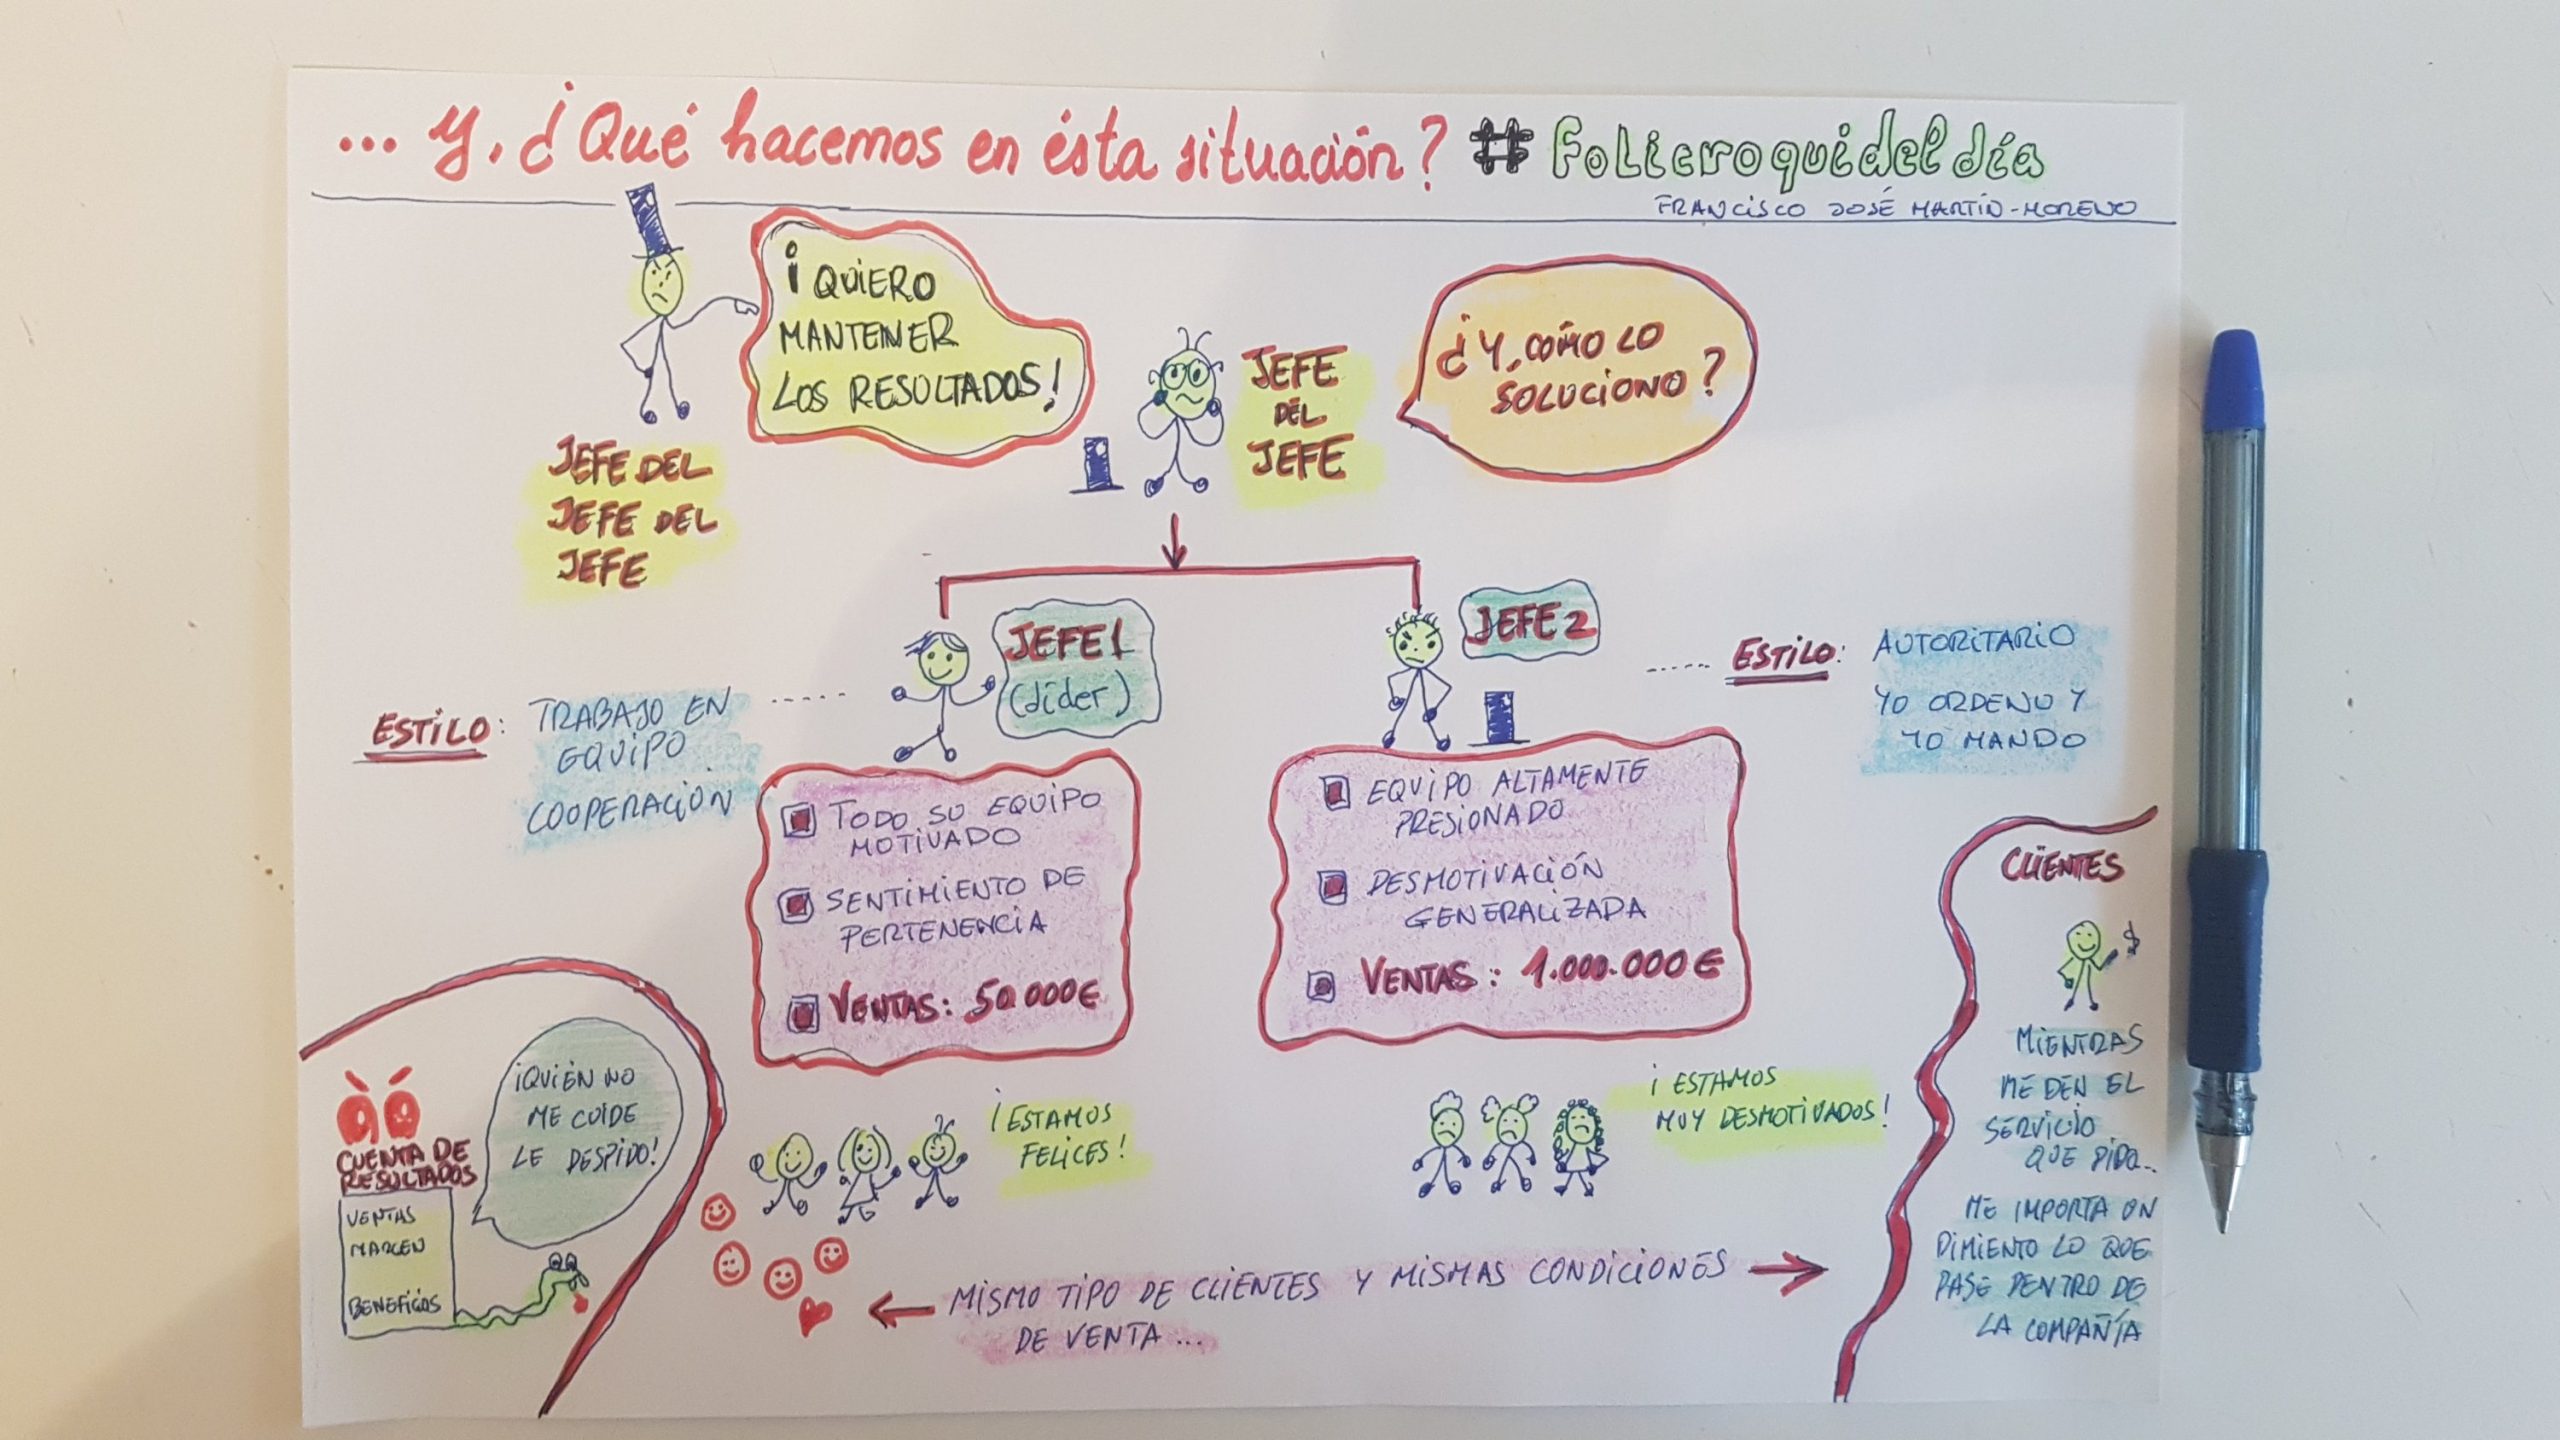 ... y, ¿Qué hacemos en ésta situación? #folicroquideldía
FRANCISCO JOSÉ MARTÍN-MORENO
¡QUIERO
MANTENER
LOS RESULTADOS!
JEFE DEL
JEFE DEL
JEFE
JEFE
DEL
JEFE
¿Y, CÓMO LO
SOLUCIONO?
JEFE 1
(líder)
ESTILO: TRABAJO EN
EQUIPO
COOPERACIÓN
TODO SU EQUIPO
MOTIVADO
SENTIMIENTO DE
PERTENENCIA
VENTAS: 50.000€
JEFE 2
ESTILO: AUTORITARIO
YO ORDENO Y
YO MANDO
EQUIPO ALTAMENTE
PRESIONADO
DESMOTIVACIÓN
GENERALIZADA
VENTAS: 1.000.000€
CUENTA DE
RESULTADOS
VENTAS
MARGEN
BENEFICIOS
¡QUIÉN NO
ME CUIDE
LE DESPIDO!
¡ESTAMOS
FELICES!
¡ESTAMOS
MUY DESMOTIVADOS!
MISMO TIPO DE CLIENTES Y MISMAS CONDICIONES
DE VENTA...
CLIENTES
$
MIENTRAS
ME DEN EL
SERVICIO
QUE PIDO...
ME IMPORTA UN
PIMIENTO LO QUE
PASE DENTRO DE
LA COMPAÑÍA